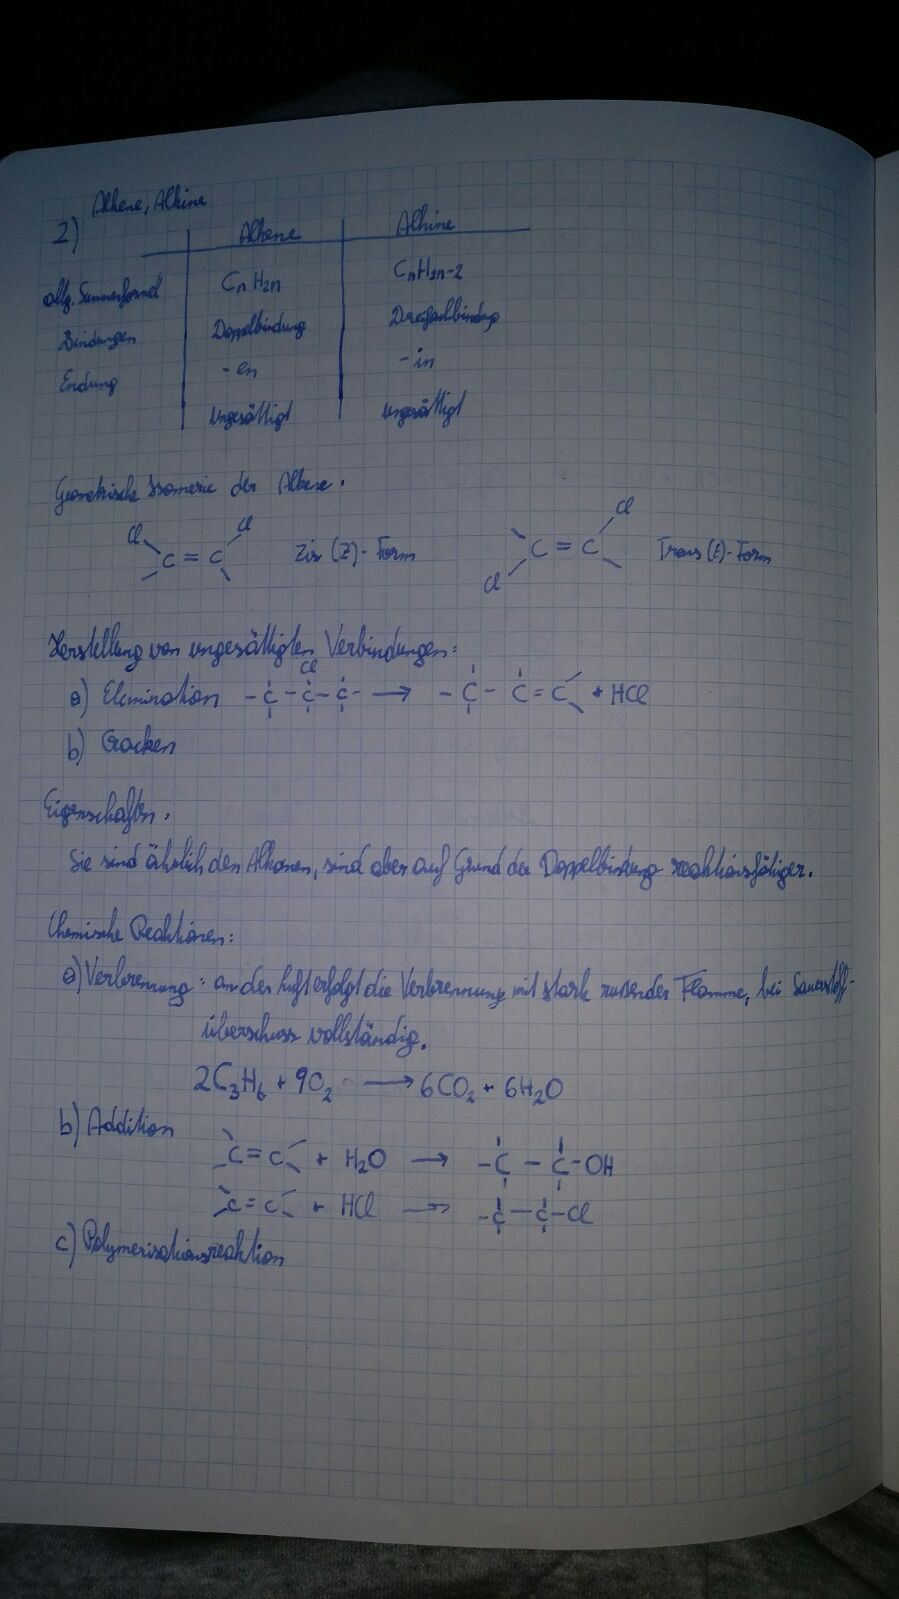 2) Alkene, Alkine
Alkene Alkine
allg. Summenformel CnH2n CnH2n-2
Bindungen Doppelbindung Dreifachbindung
Endung -en -in
ungesättigt ungesättigt
Geometrische Isomerie der Alkene:
Cl Cl C = C Zis (Z)-Form Cl C = C Cl Trans (E)-Form
Herstellung von ungesättigten Verbindungen:
Cl
a) Elemination - C - C - C - → - C - C = C + HCl
b) Cracken
Eigenschaften:
Sie sind ähnlich den Alkanen, sind aber auf Grund der Doppelbindung reaktionsfähiger.
Chemische Reaktionen:
a) Verbrennung: an der Luft erfolgt die Verbrennung mit stark rußender Flamme, bei Sauerstoff-
überschuss vollständig.
2C3H6 + 9O2 → 6CO2 + 6H2O
b) Addition
C = C + H2O → - C - C - OH
C = C + HCl → - C - C - Cl
c) Polymerisationsreaktion